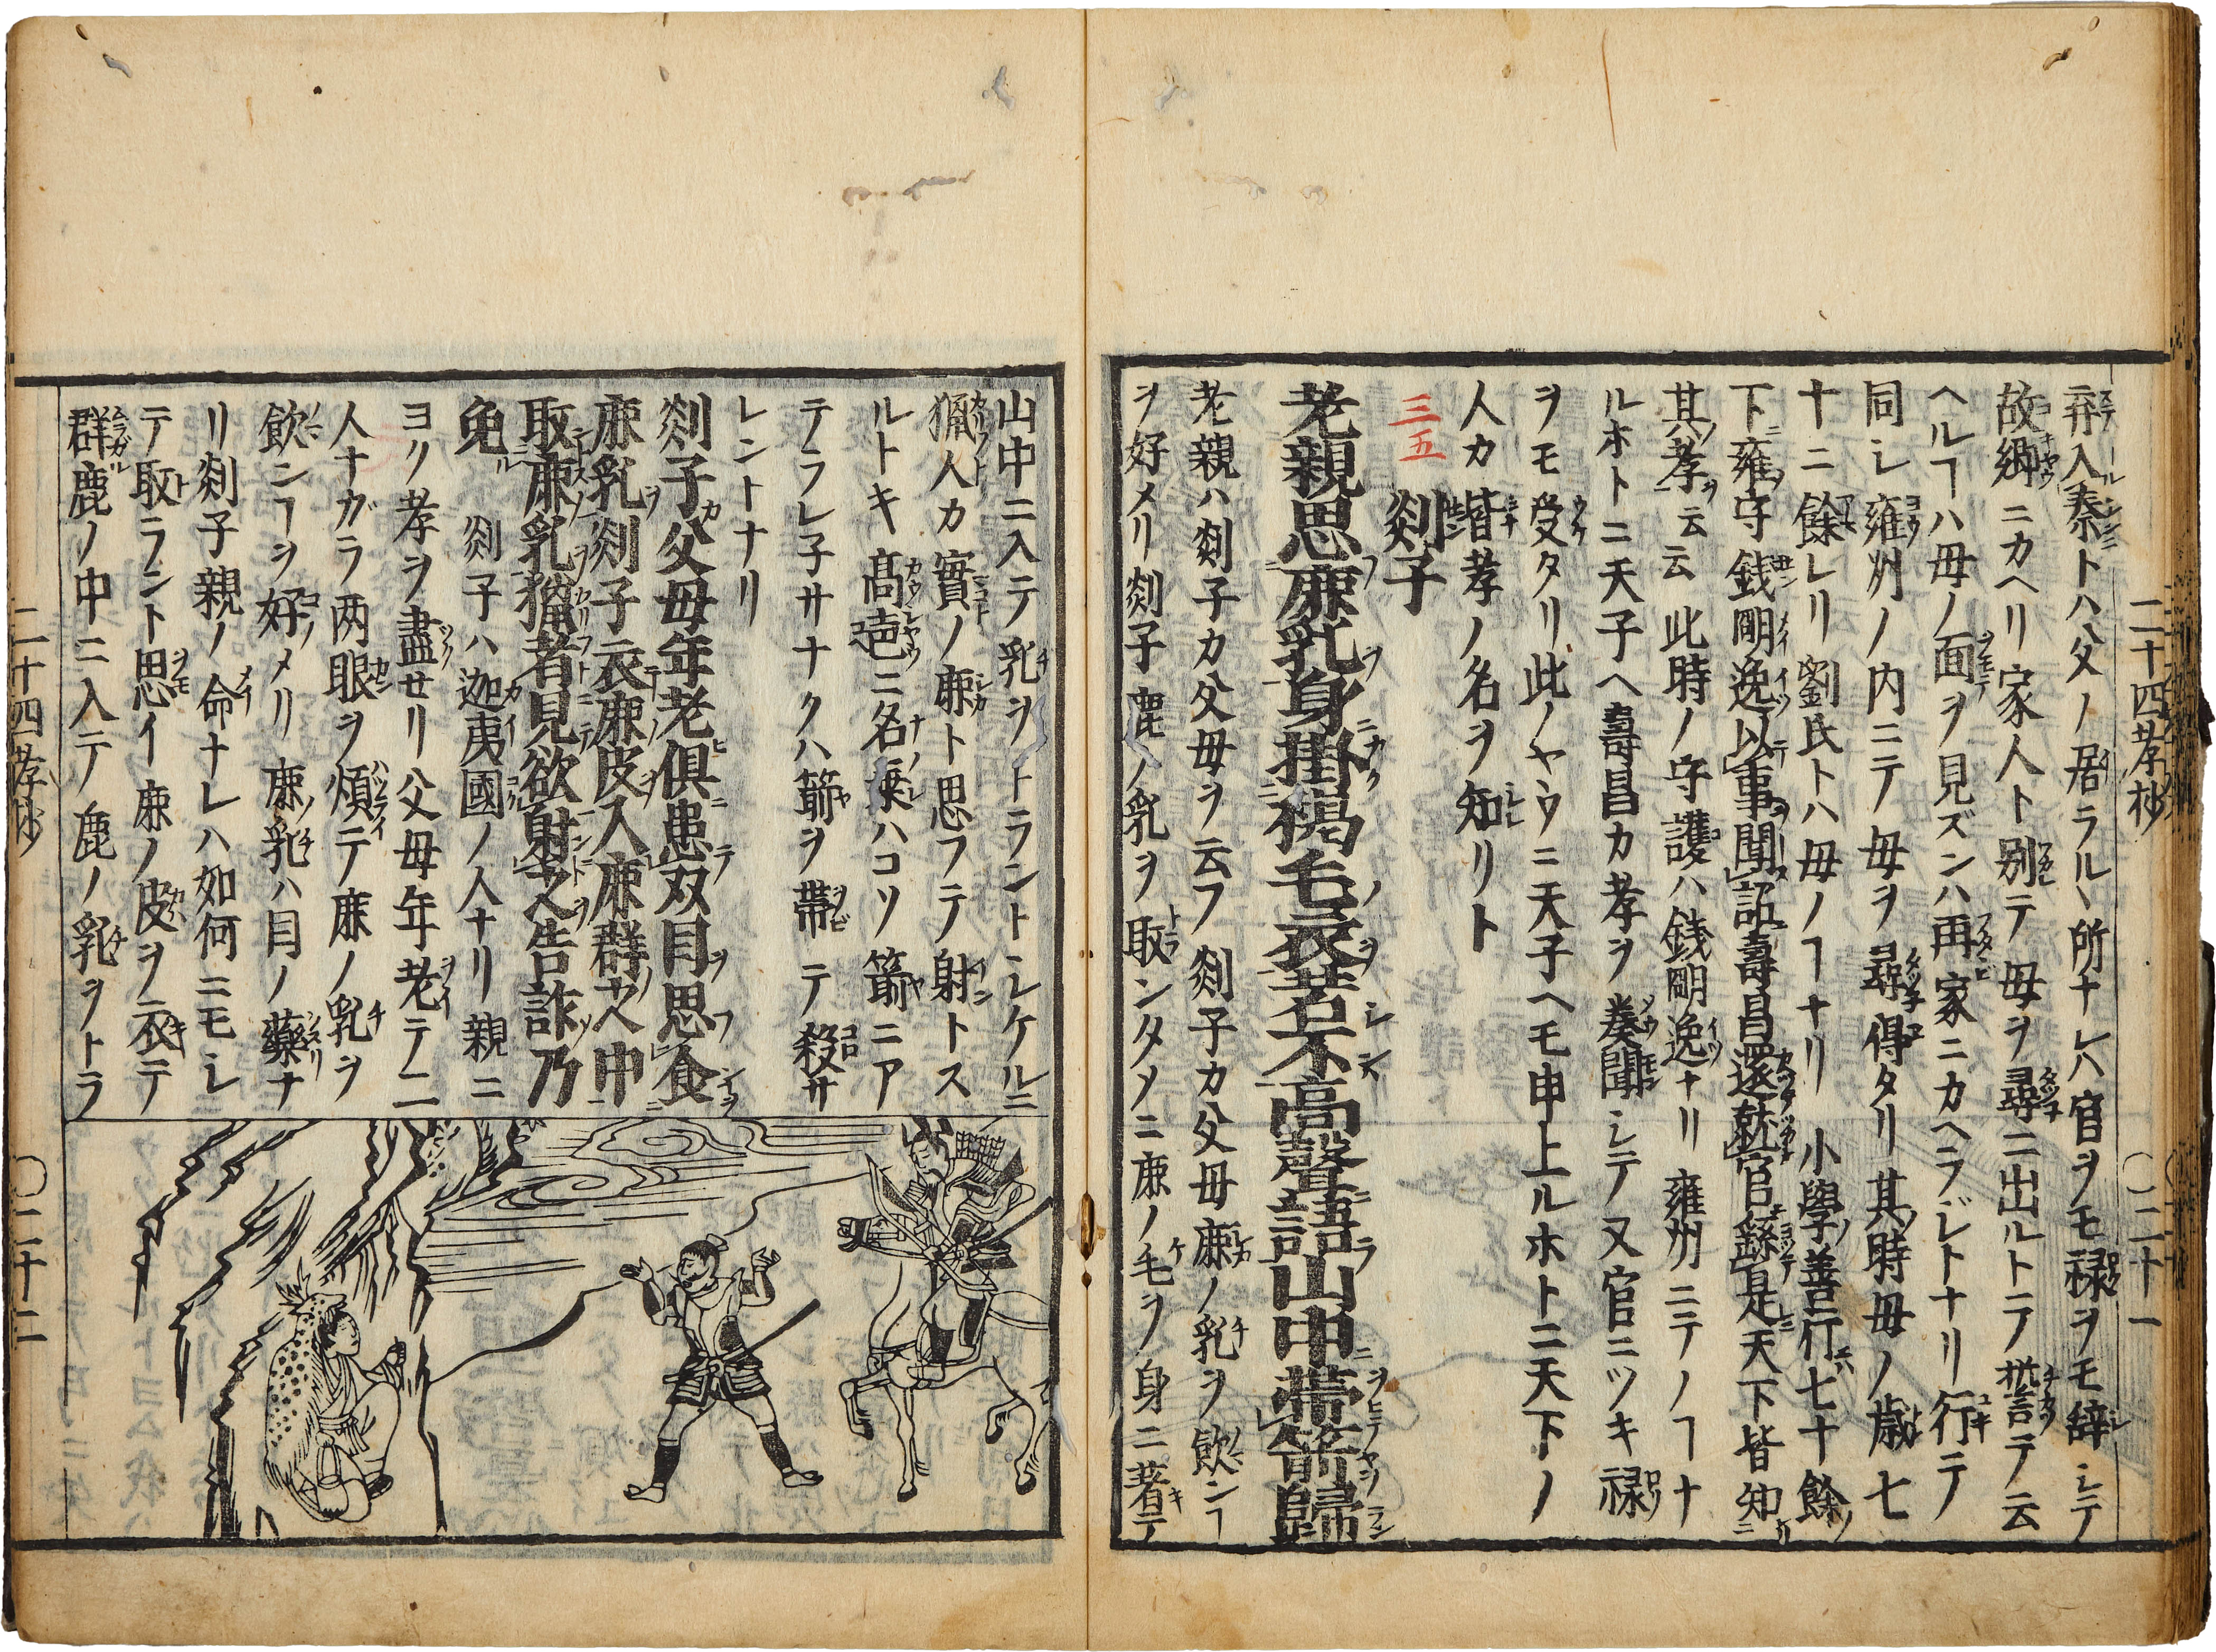 二十四孝抄 〇二十一
弃入秦トハ父ノ居ラルヽ所ナレハ官ヲモ禄ヲモ辞シテ
故郷ニカヘリ家人ト別テ母ヲ尋ニ出ルトテ誓テ云
ヘルヿハ母ノ面ヲ見ズンハ再家ニカヘラジトナリ行テ
同シ雍州ノ内ニテ母ヲ尋得タリ其時母ノ歳七
十ニ餘レリ劉氏トハ母ノヿナリ 小學善行七十餘
下雍守銭明逸以事聞詔壽昌還就官繇是天下皆知
其孝云云 此時ノ守護ハ銭明逸ナリ雍州ニテノヿナ
ルホトニ天子ヘ壽昌カ孝ヲ奏聞シテ又官ニツキ禄
ヲモ受タリ此ノヤウニ天子ヘモ申上ルホトニ天下ノ
人カ皆孝ノ名ヲ知リト
三五
剡子
老親思鹿乳身掛褐毛衣若不高聲語山中帶箭歸
老親ハ剡子カ父母ヲ云フ剡子カ父母鹿ノ乳ヲ飲ンヿ
ヲ好メリ剡子鹿ノ乳ヲ取ンタメニ鹿ノ毛ヲ身ニ著テ
山中ニ入テ乳ヲトラントシケルニ
獵人カ實ノ鹿ト思フテ射トス
ルトキ高聲ニ名乗ハコソ箭ニア
テラレ子サナクハ箭ヲ帶テ殺サ
レントナリ
剡子父母年老俱患双目思食
鹿乳剡子衣鹿皮入鹿群之中
取鹿乳獵者見欲射之告詐乃
免 剡子ハ迦夷國ノ人ナリ親ニ
ヨリ孝ヲ盡せリ父母年老テ二
人ナガラ两眼ヲ煩テ鹿ノ乳ヲ
飲ンヿヲ好メリ鹿ノ乳ハ目ノ藥ナ
リ剡子親ノ命ナレハ如何ニモシ
テ取ラント思イ鹿ノ皮ヲ衣テ
群鹿ノ中ニ入テ鹿ノ乳ヲトラ
二十四孝抄 〇二十二